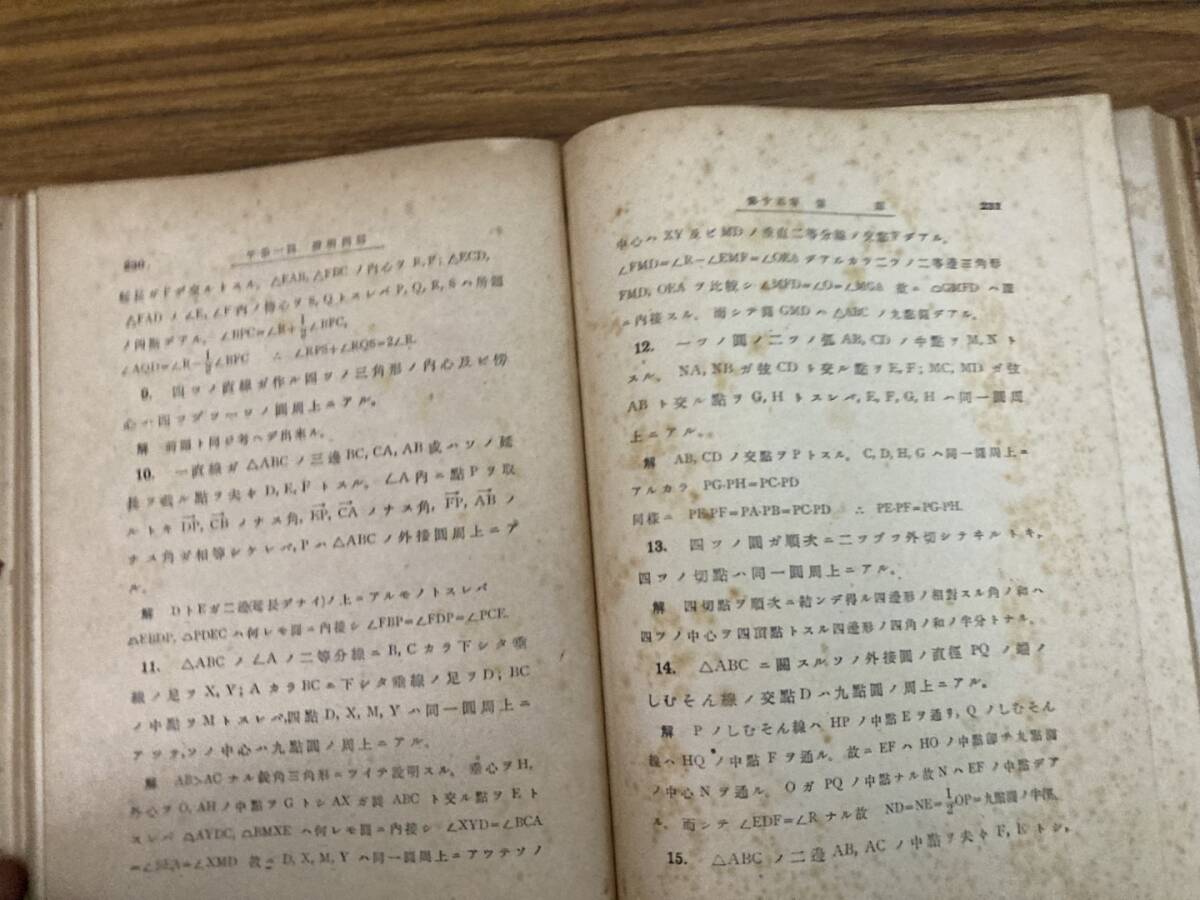 230
延長ガ F デ交ルトスル。△EAB, △FBC ノ内心ヲ R, P; △ECD,
△FAD ノ ∠E, ∠F 内ノ傍心ヲ S, Q トスレバ P, Q, R, S ハ所題
ノ四點デアル。∠BPC=∠R+1/2∠BFC,
∠AQD=∠R−1/2∠BFC ∴ ∠RPS+∠RQS=2∠R.
9. 四ツノ直線ガ作ル四ツノ三角形ノ内心及ビ傍
心ハ四ツヅツ一ツノ圓周上ニアル。
解 前題ト同ジ考ヘデ出來ル。
10. 一直線ガ △ABC ノ三邊 BC, CA, AB 或ハソノ延
長ヲ截ル點ヲ夫々 D, E, F トスル。∠A 内ニ點 P ヲ取
ルトキ DP, CB ノナス角, EP, CA ノナス角, FP, AB ノ
ナス角ガ相等シケレバ, P ハ △ABC ノ外接圓周上ニア
ル。
解 D ト E ガ二邊(延長デナイ)ノ上ニアルモノトスレバ
△FBDP, △PDEC ハ何レモ圓ニ内接シ ∠FBP=∠FDP=∠PCE.
11. △ABC ノ ∠A ノ二等分線ニ B, C カラ下シタ垂
線ノ足ヲ X, Y; A カラ BC ニ下シタ垂線ノ足ヲ D; BC
ノ中點ヲ M トスレバ, 四點 D, X, M, Y ハ同一圓周上ニ
アツテ, ソノ中心ハ九點圓ノ周上ニアル。
解 AB>AC ナル鋭角三角形ニツイテ説明スル。垂心ヲ H,
外心ヲ O, AH ノ中點ヲ G トシ AX ガ圓 ABC ト交ル點ヲ E ト
スレバ △AYDC, △BMXE ハ何レモ圓ニ内接シ ∠XYD=∠BCA
=∠BEA=∠XMD 故ニ D, X, M, Y ハ同一圓周上ニアツテソノ
第十五章 231
中心ハ XY 及ビ MD ノ垂直二等分線ノ交點 F デアル。
∠FMD=∠R−∠EMF=∠OEA デアルカラ二ツノ二等邊三角形
FMD, OEA ヲ比較シ ∠MFD=∠O=∠MGA 故ニ △GMFD ハ圓
ニ内接スル。而シテ圓 GMD ハ △ABC ノ九點圓デアル。
12. 一ツノ圓ノ二ツノ弧 AB, CD ノ中點ヲ M, N ト
スル。NA, NB ガ弦 CD ト交ル點ヲ E, F; MC, MD ガ弦
AB ト交ル點ヲ G, H トスレバ, E, F, G, H ハ同一圓周
上ニアル。
解 AB, CD ノ交點ヲ P トスル。C, D, H, G ハ同一圓周上ニ
アルカラ PG·PH=PC·PD
同樣ニ PE·PF=PA·PB=PC·PD ∴ PE·PF=PG·PH.
13. 四ツノ圓ガ順次ニ二ツヅツ外切シテヰルトキ,
四ツノ切點ハ同一圓周上ニアル。
解 四切點ヲ順次ニ結ンデ得ル四邊形ノ相對スル角ノ和ハ
四ツノ中心ヲ四頂點トスル四邊形ノ四角ノ和ノ半分トナル。
14. △ABC ニ關スルソノ外接圓ノ直徑 PQ ノ端ノ
しむそん線ノ交點 D ハ九點圓ノ周上ニアル。
解 P ノしむそん線ハ HP ノ中點 E ヲ通リ, Q ノしむそん
線ハ HQ ノ中點 F ヲ通ル。故ニ EF ハ HO ノ中點即チ九點圓
ノ中心 N ヲ通ル。O ガ PQ ノ中點ナル故 N ハ EF ノ中點デア
ル。而シテ ∠EDF=∠R ナル故 ND=NE=1/2OP=九點圓ノ半徑.
15. △ABC ノ二邊 AB, AC ノ中點ヲ夫々 F, E トシ,